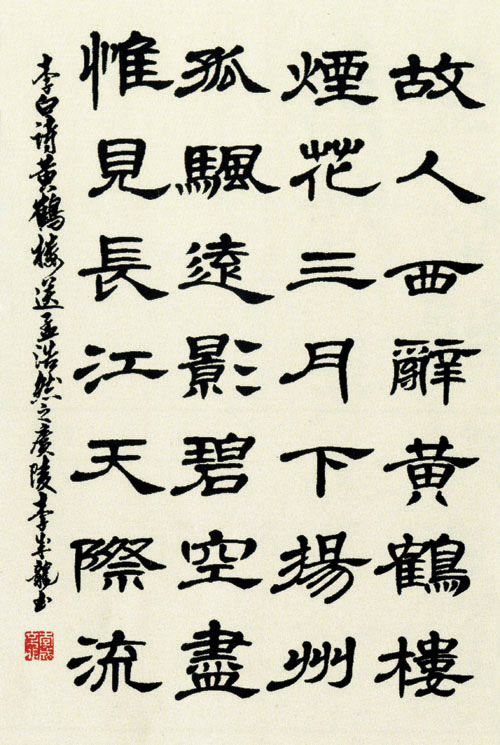 故人西辭黄鶴樓
煙花三月下揚州
孤颿遠影碧空盡
惟見長江天際流
李白诗黄鶴楼送孟浩然之廣陵李龍书